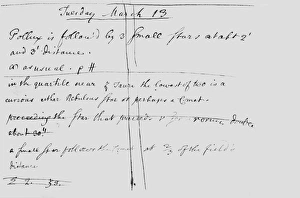 Tuesday March 13
Pollux is follow'd by 3 small stars at abt 2'
and 3' distance.
♂ as usual. p #
in the quartile near ζ Tauri the lowest of two is a
curious either Nebulous star or perhaps a Comet.
preceeding the star that preceeds
about 30"
a small star follows the Comet at ⅔ of the field's
distance